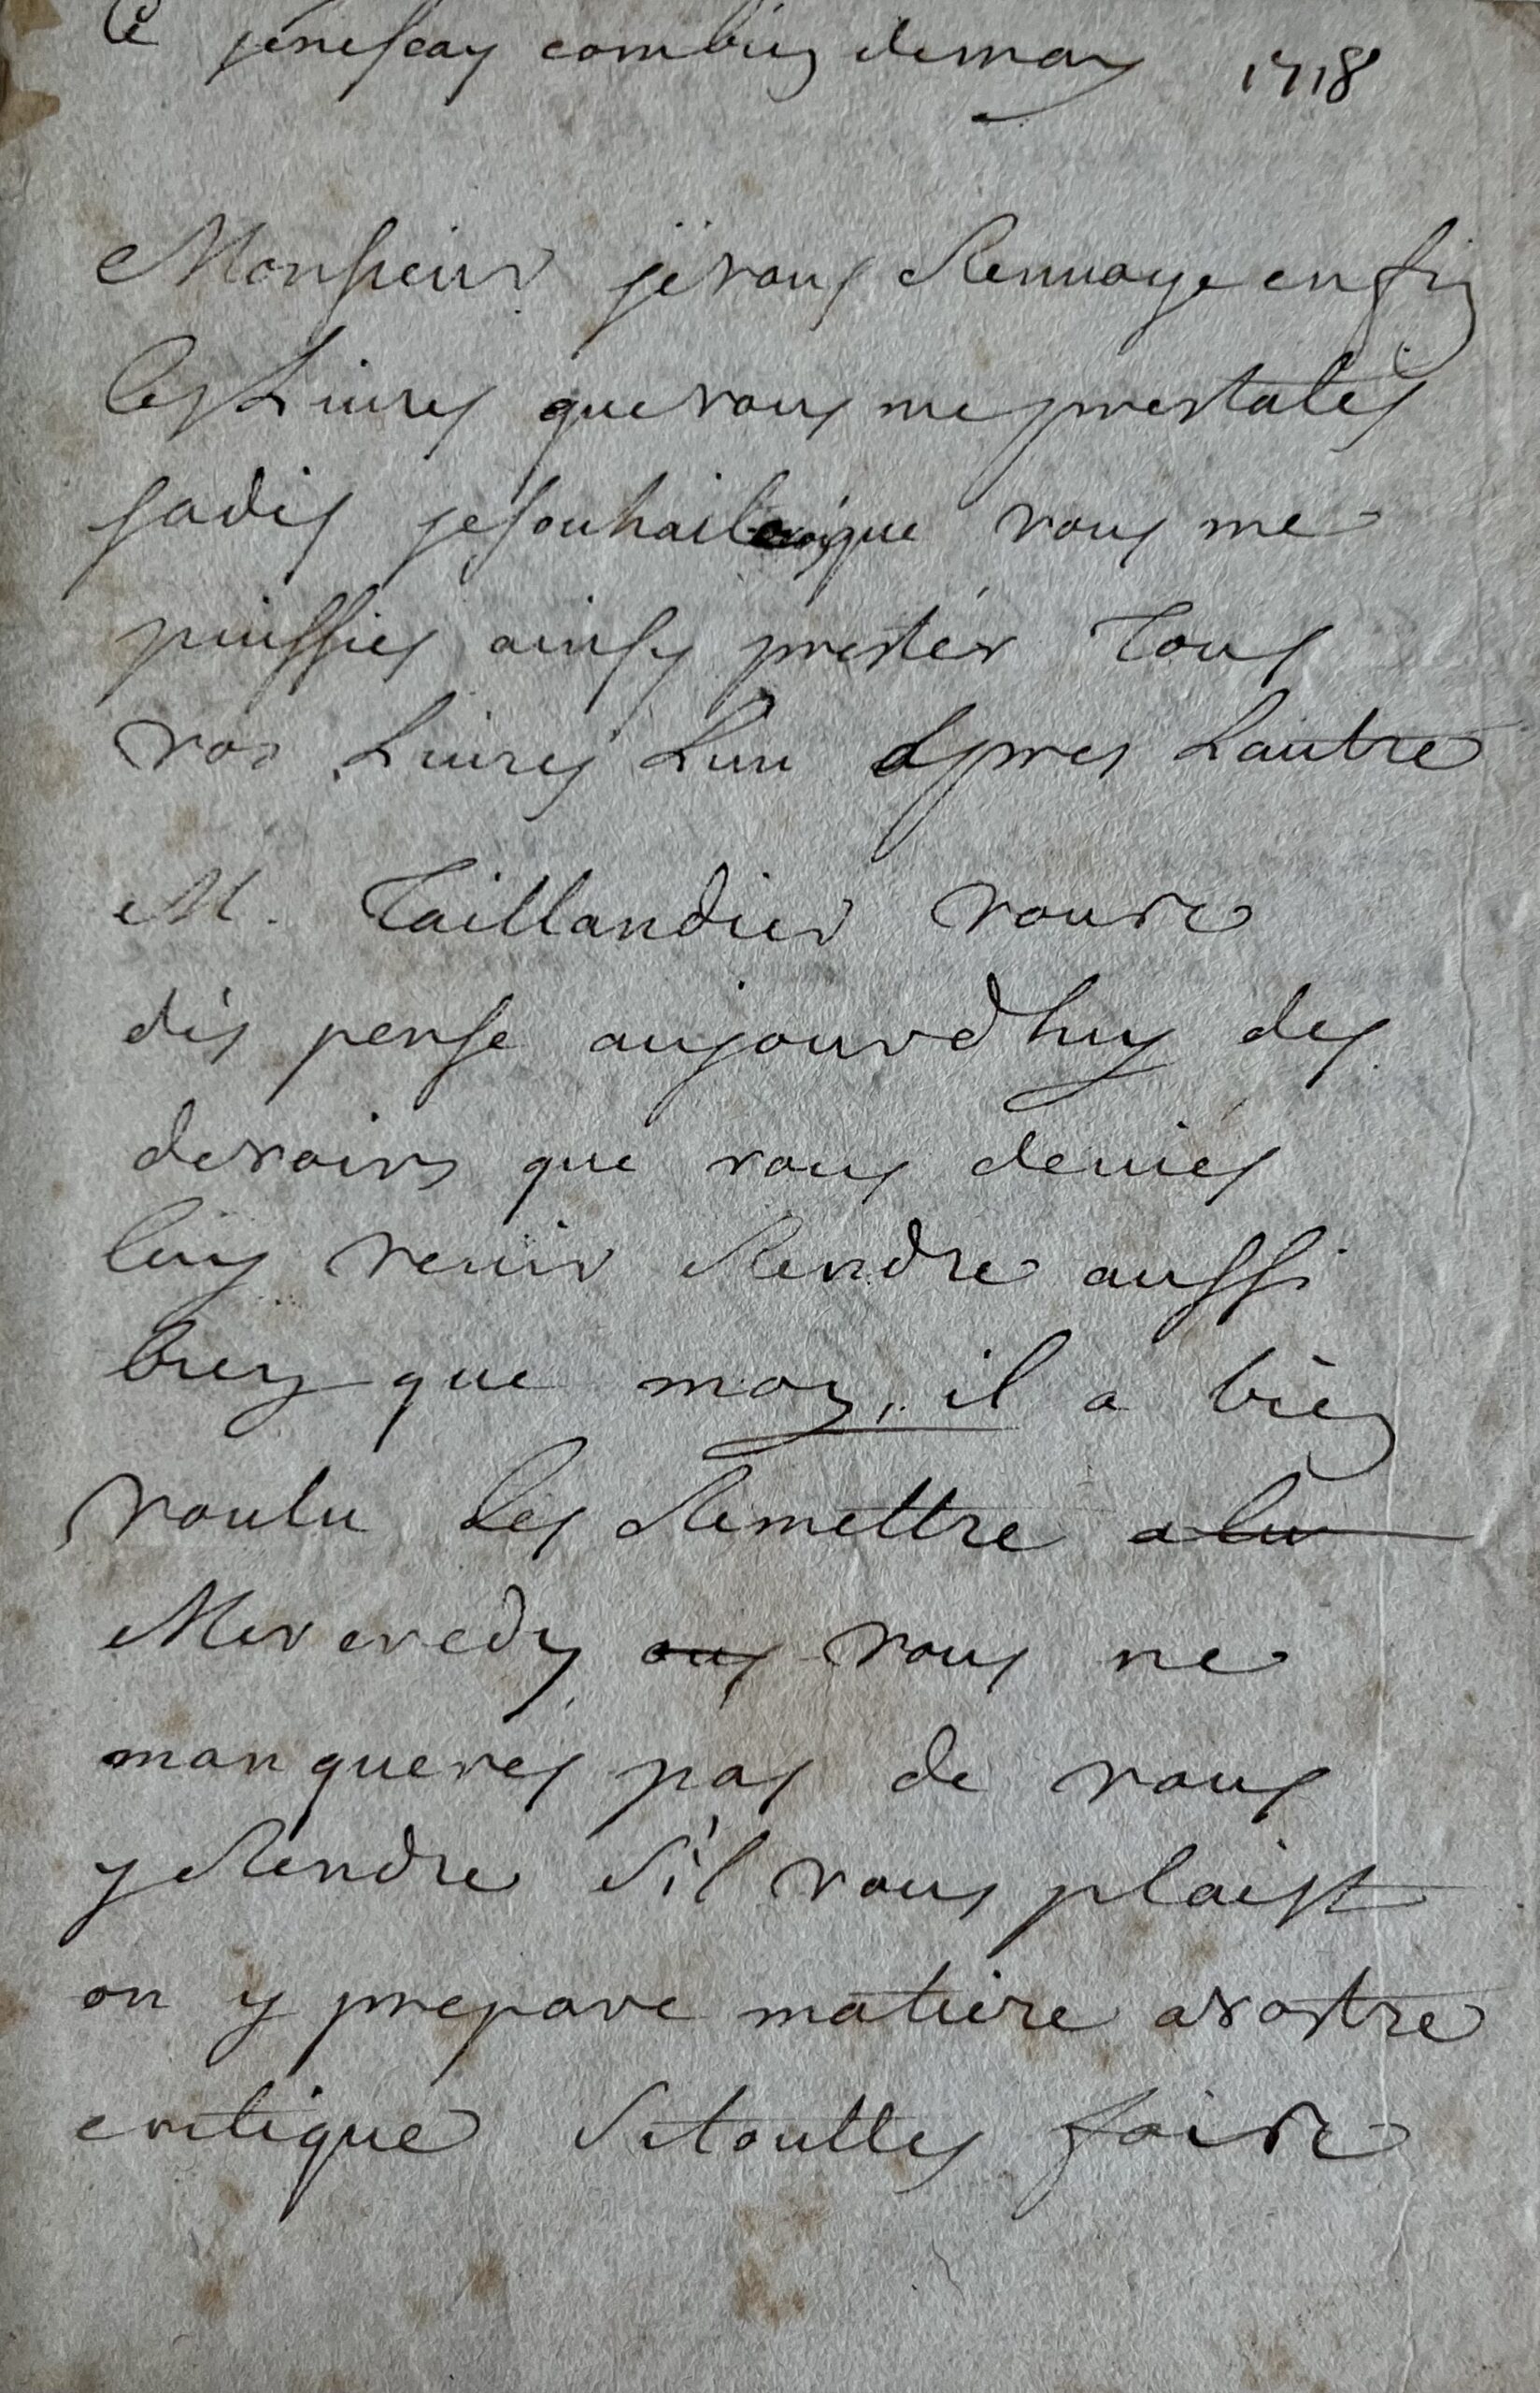 Ce jenescay combien demay 1718
Monsieur je vous Renuoye enfin
les Liures que vous me prestates
jadis je souhaite que vous me
puissies ainsy prester tous
vos Liures Lun apres Lautre
M. Taillandier vous
dis pense aujourdhuy des
devoirs que vous deuies
luy venir Rendre aussi
bien que moy, il a bien
voulu les Remettre a
Mercredy vous ne
manqueres pas de vous
y Rendre s'il vous plaist
on y prepare matiere avostre
critique faire